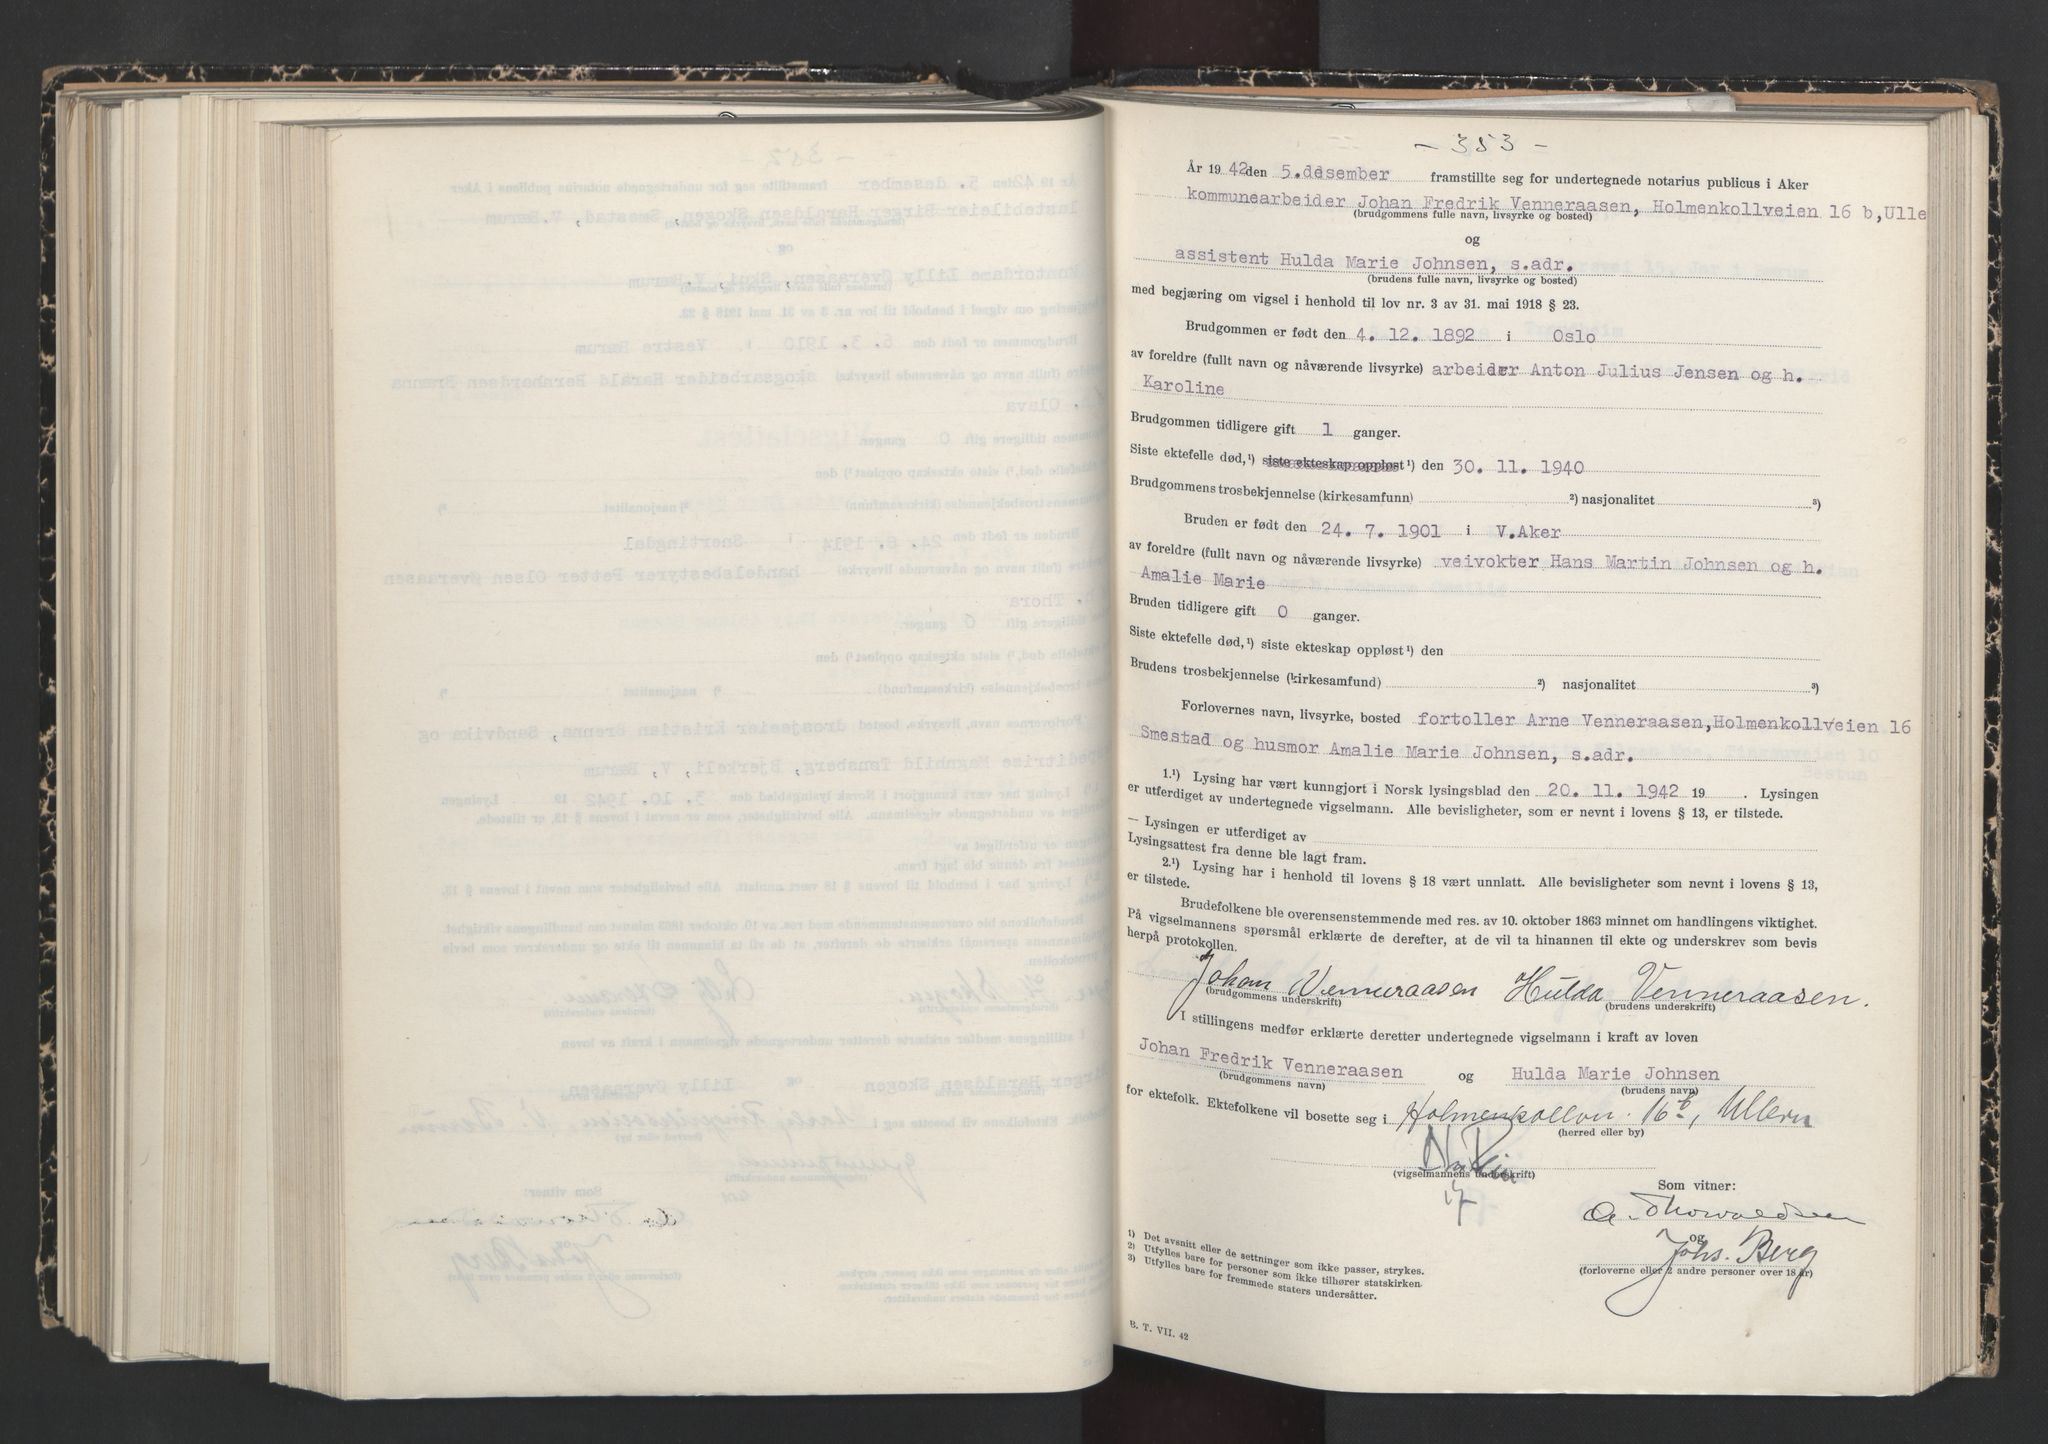 - 353 -
År 1942 den 5.desember framstillte seg for undertegnede notarius publicus i Aker
kommunearbeider Johan Fredrik Venneraasen, Holmenkollveien 16 b,Ulle
(brudgommens fulle navn, livsyrke og bosted)
og
assistent Hulda Marie Johnsen, s.adr.
(brudens fulle navn, livsyrke og bosted)
med begjæring om vigsel i henhold til lov nr. 3 av 31. mai 1918 § 23.
Brudgommen er født den 4. 12. 1892 i Oslo
av foreldre (fullt navn og nåværende livsyrke) arbeider Anton Julius Jensen og h.
Karoline
Brudgommen tidligere gift 1 ganger.
Siste ektefelle død,¹) siste ekteskap oppløst¹) den 30. 11. 1940
Brudgommens trosbekjennelse (kirkesamfunn) ²) nasjonalitet ³)
Bruden er født den 24. 7. 1901 i V.Aker
av foreldre (fullt navn og nåværende livsyrke) veivokter Hans Martin Johnsen og h.
Amalie Marie
Bruden tidligere gift 0 ganger.
Siste ektefelle død,¹) siste ekteskap oppløst¹) den
Brudens trosbekjennelse (kirkesamfund) ²) nasjonalitet ³)
Forlovernes navn, livsyrke, bosted fortoller Arne Venneraasen,Holmenkollveien 16
Smestad og husmor Amalie Marie Johnsen, s.adr.
1.¹) Lysing har vært kunngjort i Norsk lysingsblad den 20. 11. 1942 19 . Lysingen
er utferdiget av undertegnede vigselmann. Alle bevisligheter, som er nevnt i lovens § 13, er tilstede.
— Lysingen er utferdiget av
Lysingsattest fra denne ble lagt fram.
2.¹) Lysing har i henhold til lovens § 18 vært unnlatt. Alle bevisligheter som nevnt i lovens § 13,
er tilstede.
Brudefolkene ble overensenstemmende med res. av 10. oktober 1863 minnet om handlingens viktighet.
På vigselmannens spørsmål erklærte de derefter, at de vil ta hinannen til ekte og underskrev som bevis
herpå protokollen.
Johan Venneraasen Hulda Venneraasen.
(brudgommens underskrift) (brudens underskrift)
I stillingens medfør erklærte deretter undertegnede vigselmann i kraft av loven
Johan Fredrik Venneraasen og Hulda Marie Johnsen
(brudgommens navn) (brudens navn)
for ektefolk. Ektefolkene vil bosette seg i Holmenkollvn. 16 b, Ullern
(herred eller by)
(vigselmannens underskrift)
Som vitner:
A. Thorvaldsen
og
Johs. Berg
(forloverne eller 2 andre personer over 18 år)
1) Det avsnitt eller de settninger som ikke passer, strykes.
2) Utfylles bare for personer som ikke tilhører statskirken.
3) Utfylles bare for fremmede staters undersåtter.
B. T. VII. 42